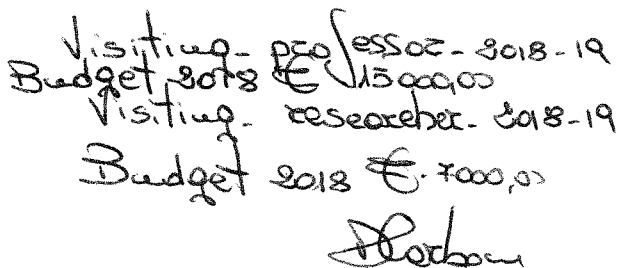 Visiting- professor- 2018-19
Budget 2018 € 15000,00
Visiting- researcher- 2018-19
Budget 2018 €. 7000,00